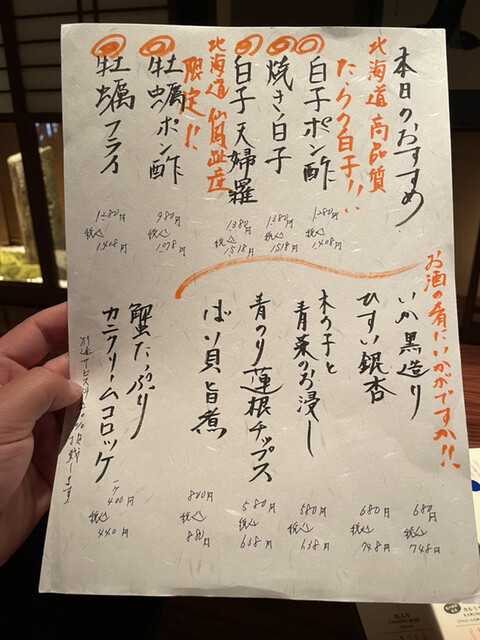 本日のおすすめ
北海道 高品質
たらの白子!!
白子ポン酢
1280円
税込
1408円
焼き白子
1380円
税込
1518円
白子 天婦羅
1380円
税込
1518円
北海道 仙鳳趾産
限定!!
牡蠣ポン酢
980円
税込
1078円
牡蠣フライ
1280円
税込
1408円
お酒の肴にいかがですか!!
いか黒造り
680円
税込
748円
ひすい銀杏
680円
税込
748円
木の子と
青菜のお浸し
580円
税込
638円
青のり蓮根チップス
580円
税込
638円
ばい貝旨煮
800円
税込
880円
蟹たっぷり
カニクリームコロッケ
一ケ 400円
税込
440円